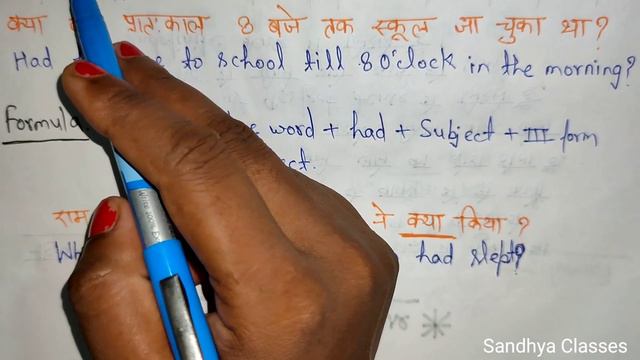 क्या प्रातःकाल 8 बजे तक स्कूल जा चुका था?
Had to school till 8 O'clock in the morning?
Formula word + had + Subject + III form
राम ने क्या किया ?
had slept?
Sandhya Classes